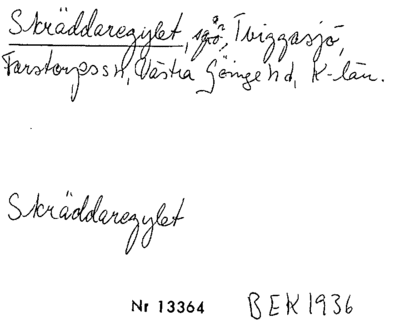 Skräddaregylet, sjön, Tviggasjö,
Farstorps sn, Västra Göinge hd, K-län.
Skräddaregylet
Nr 13364 BEK 1936